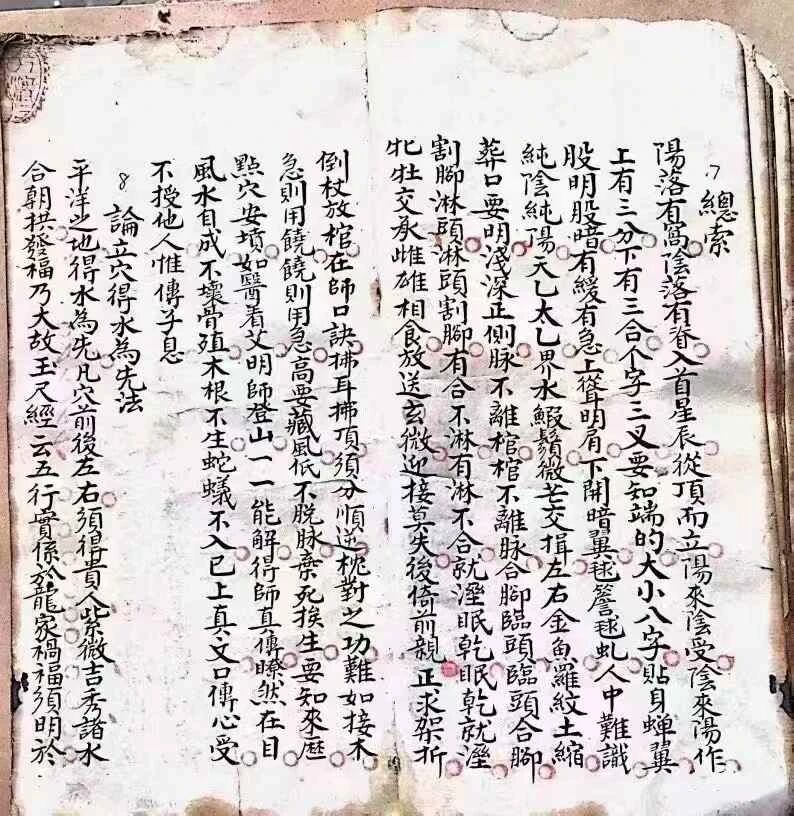 7 總索
陽落有窩陰落有脊入首星辰從頂而立陽來陰受陰來陽作
上有三分下有三合个字三叉要知端的大小八字貼身蟬翼
股明股暗有緩有急上從耳明肩下開暗翼毬簷毬虬人中難識
純陰純陽天乙太乙界水鰕鬚微茫交揖左右金魚羅紋土縮
葬口要明淺深正側脉不離棺棺不離脉合腳臨頭臨頭合腳
割腳淋頭淋頭割腳有合不淋有淋不合就溼眠乾眠乾就溼
牝牡交承雌雄相食放送玄微迎接莫失後倚前親正求架折
倒杖放棺在師口訣拂耳拂頂須分順逆枕對之功難如接木
急則用饒饒則用急高要藏風低不脱脉棄死挨生要知來歷
點穴安墳如醫看艾明師登山一一能解得師真傳瞭然在目
風水自成不壞骨殖木根不生蛇蟻不入已上真文口傳心受
不授他人惟傳子息
8 論立穴得水為先法
平洋之地得水為先凡穴前後左右須得貴人紫微吉秀諸水
合朝拱發福乃大故玉尺經云五行實係於龍家禍福須明於